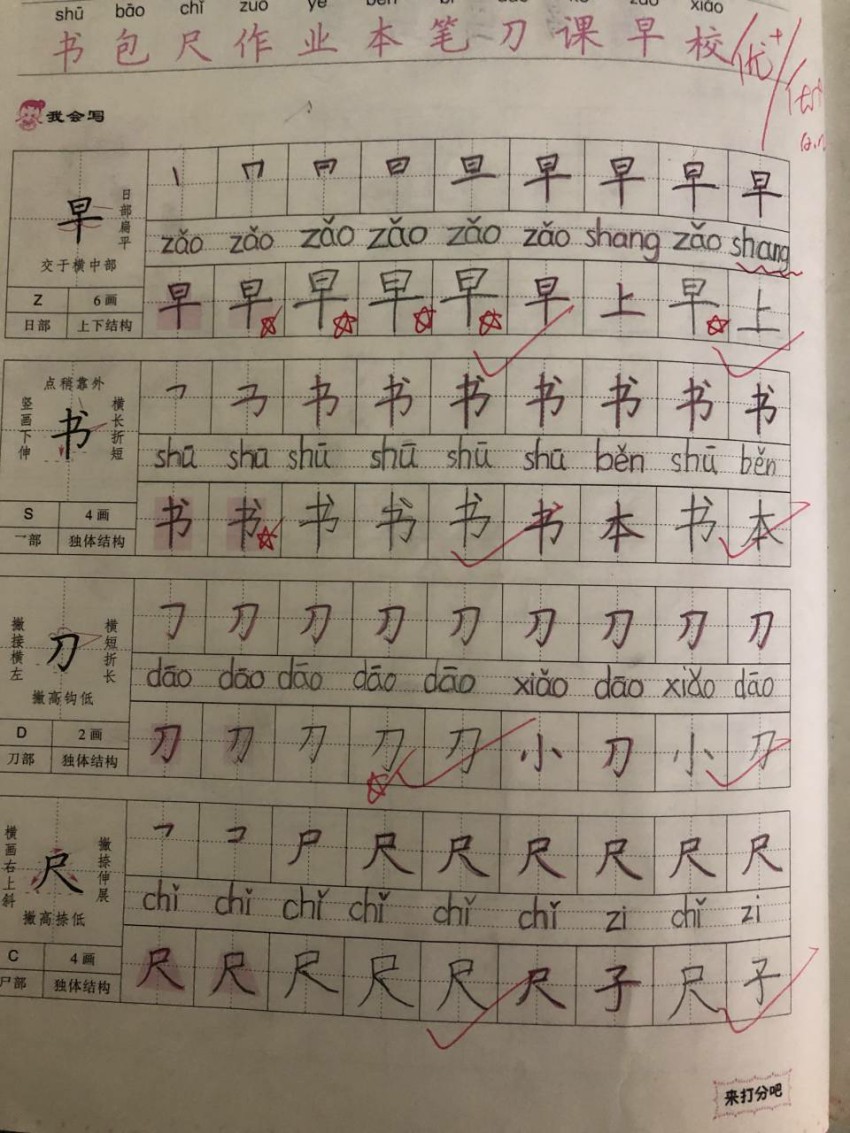 shū bāo chǐ zuò yè běn bǐ dāo kè zǎo xiào
书 包 尺 作 业 本 笔 刀 课 早 校
优+
我会写
早
日部扁平
交于横中部
zǎo zǎo zǎo zǎo zǎo zǎo shang zǎo shang
早 早 早 早 早 早 上 早 上
Z 6画
日部 上下结构
点稍靠外
竖画下伸
书
横长折短
书 书 书 书 书 书 书
shū shū shū shū shū shū běn shū běn
书 书 书 书 书 书 本 书 本
S 4画
乛部 独体结构
撇接横左
刀
横短折长
撇高钩低
刀 刀 刀 刀 刀 刀 刀 刀
dāo dāo dāo dāo dāo xiǎo dāo xiǎo dāo
刀 刀 刀 刀 刀 小 刀 小 刀
D 2画
刀部 独体结构
横画右上斜
尺
撇捺伸展
撇高捺低
尸 尺 尺 尺 尺 尺 尺
chǐ chǐ chǐ chǐ chǐ chǐ zi chǐ zi
尺 尺 尺 尺 尺 尺 子 尺 子
C 4画
尸部 独体结构
来打分吧